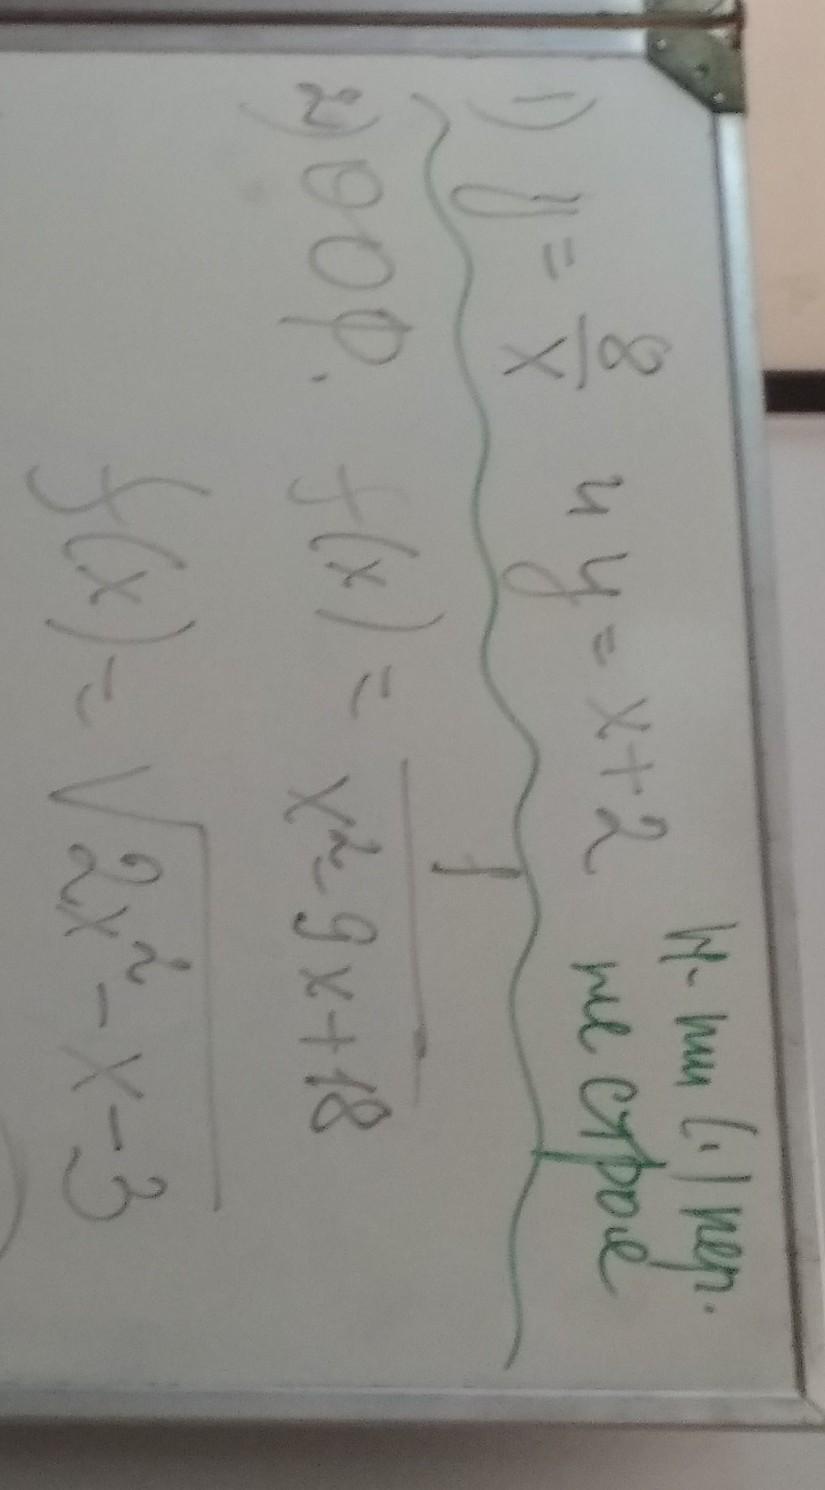 1) y = 8/x и y = x+2 н-ти (.) пер.
не строя
2) ООФ. f(x) = 1/(x²-9x+18)
f(x) = √(2x²-x-3)